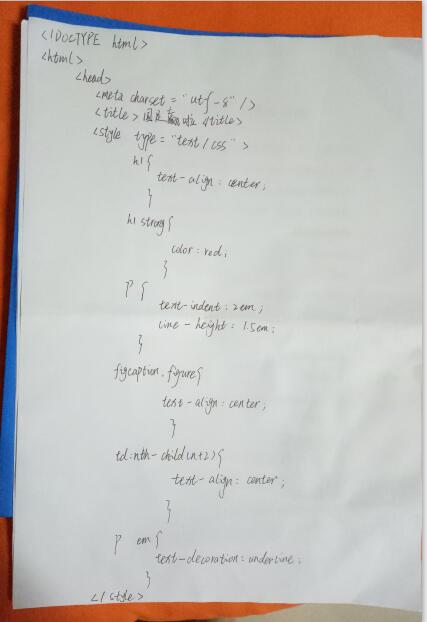 <!DOCTYPE html>
<html>
<head>
<meta charset="utf-8"/>
<title>固定 </title>
<style type="text/css">
h1{
text-align:center;
}
h1 strong{
color:red;
}
p {
text-indent:2em;
line-height:1.5em;
}
figcaption,figure{
text-align:center;
}
td:nth-child(n+2){
text-align:center;
}
p em{
text-decoration:underline;
}
</style>